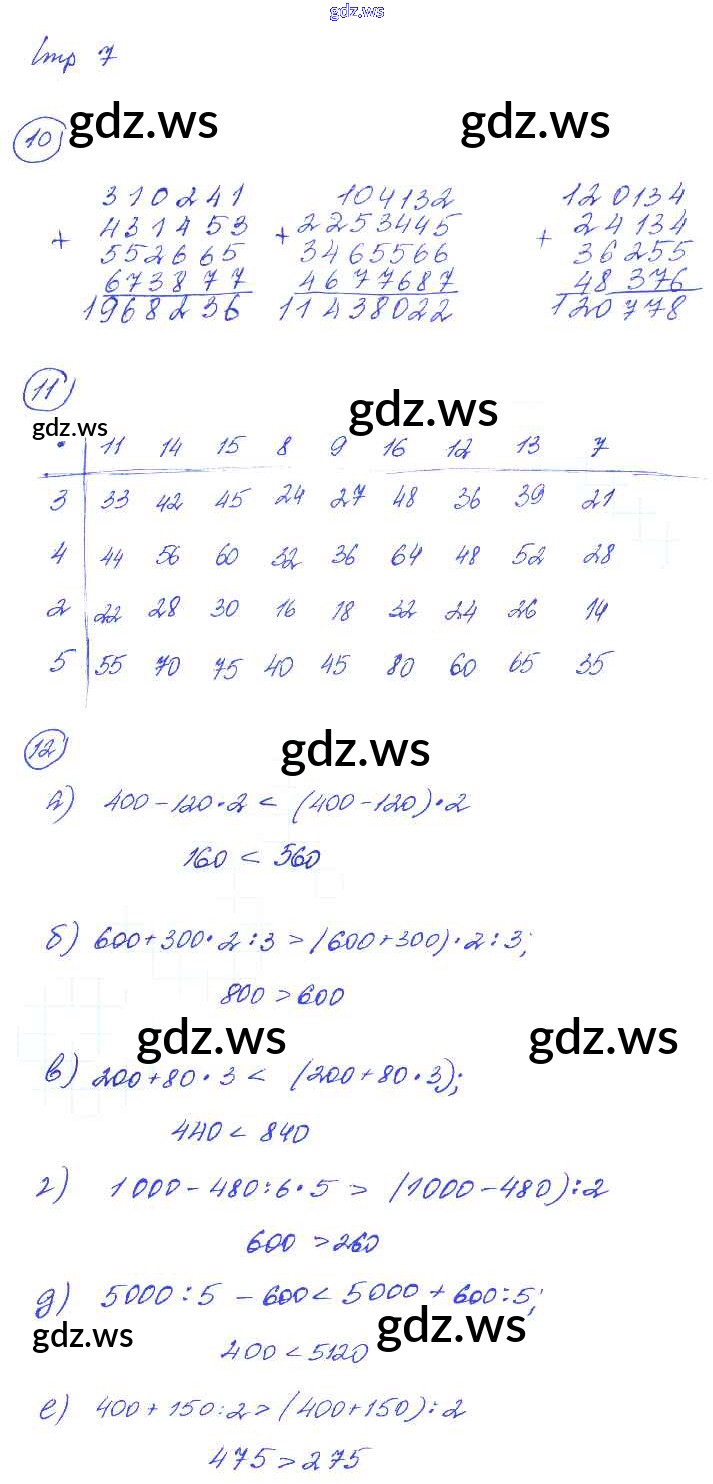 gdz.ws
Стр 7
10) gdz.ws gdz.ws
310241 104132 120134
+ 431453 + 2253445 + 24134
552665 3465566 36255
673877 4677687 48376
1968236 11438022 120778
11)
gdz.ws gdz.ws
• 11 14 15 8 9 16 12 13 7
3 33 42 45 24 27 48 36 39 21
4 44 56 60 32 36 64 48 52 28
2 22 28 30 16 18 32 24 26 14
5 55 70 75 40 45 80 60 65 35
12) gdz.ws
а) 400-120•2 < (400-120)•2
160 < 560
б) 600+300•2:3 > (600+300)•2:3;
800 > 600
gdz.ws gdz.ws
в) 200+80•3 < (200+80•3);
440 < 840
г) 1000-480:6•5 > (1000-480):2
600 > 260
д) 5000:5 - 600 < 5000 + 600:5;
gdz.ws gdz.ws
400 < 5120
е) 400+150:2 > (400+150):2
475 > 275